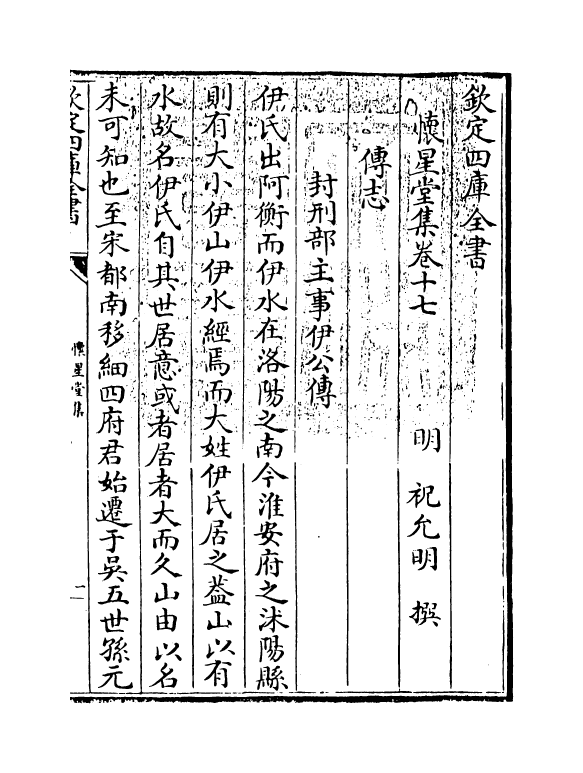 欽定四庫全書
懷星堂集卷十七
明 祝允明 撰
傳志
封刑部主事伊公傳
伊氏出阿衡而伊水在洛陽之南今淮安府之沭陽縣
則有大小伊山伊水經焉而大姓伊氏居之葢山以有
水故名伊氏自其世居意或者居者大而久山由以名
未可知也至宋都南移細四府君始遷于吳五世孫元
欽定四庫全書
懷星堂集
一